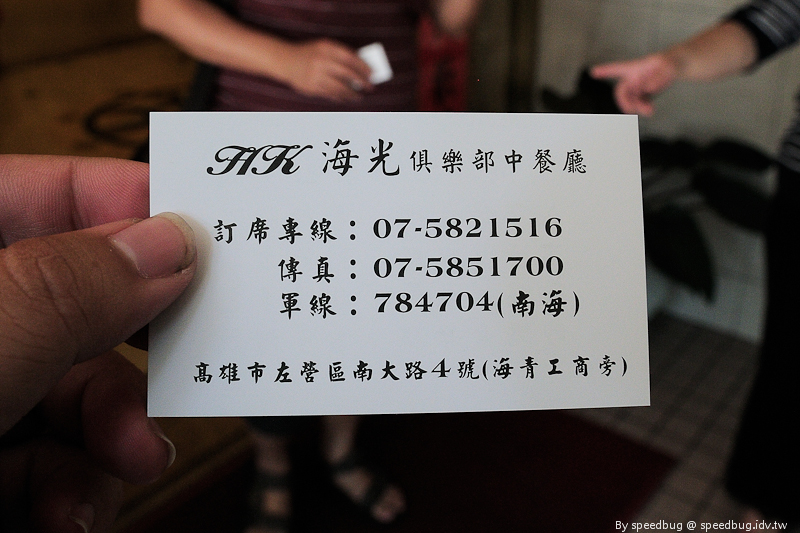 HK 海光俱樂部中餐廳
訂席專線：07-5821516
傳真：07-5851700
軍線：784704(南海)
高雄市左營區南大路4號(海青工商旁)
By speedbug @ speedbug.idv.tw